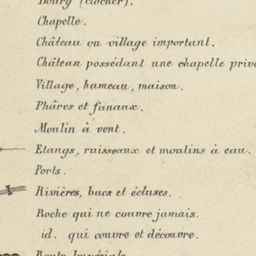 Bourg (clocher).
Chapelle.
Château ou village important.
Château possédant une chapelle priv
Village, hameau, maison.
Phâres et fanaux.
Moulin à vent.
Etangs, ruisseaux et moulins à eau.
Ports.
Rivières, bacs et écluses.
Roche qui ne couvre jamais.
id. qui couvre et découvre.
Route Impériale